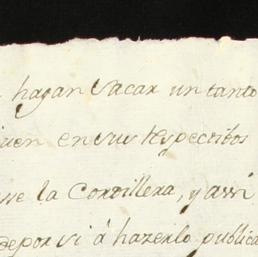 hagan sacar un tanto
en sus respectibos
la Cordillera, y assi
de por si â hazerlo publica